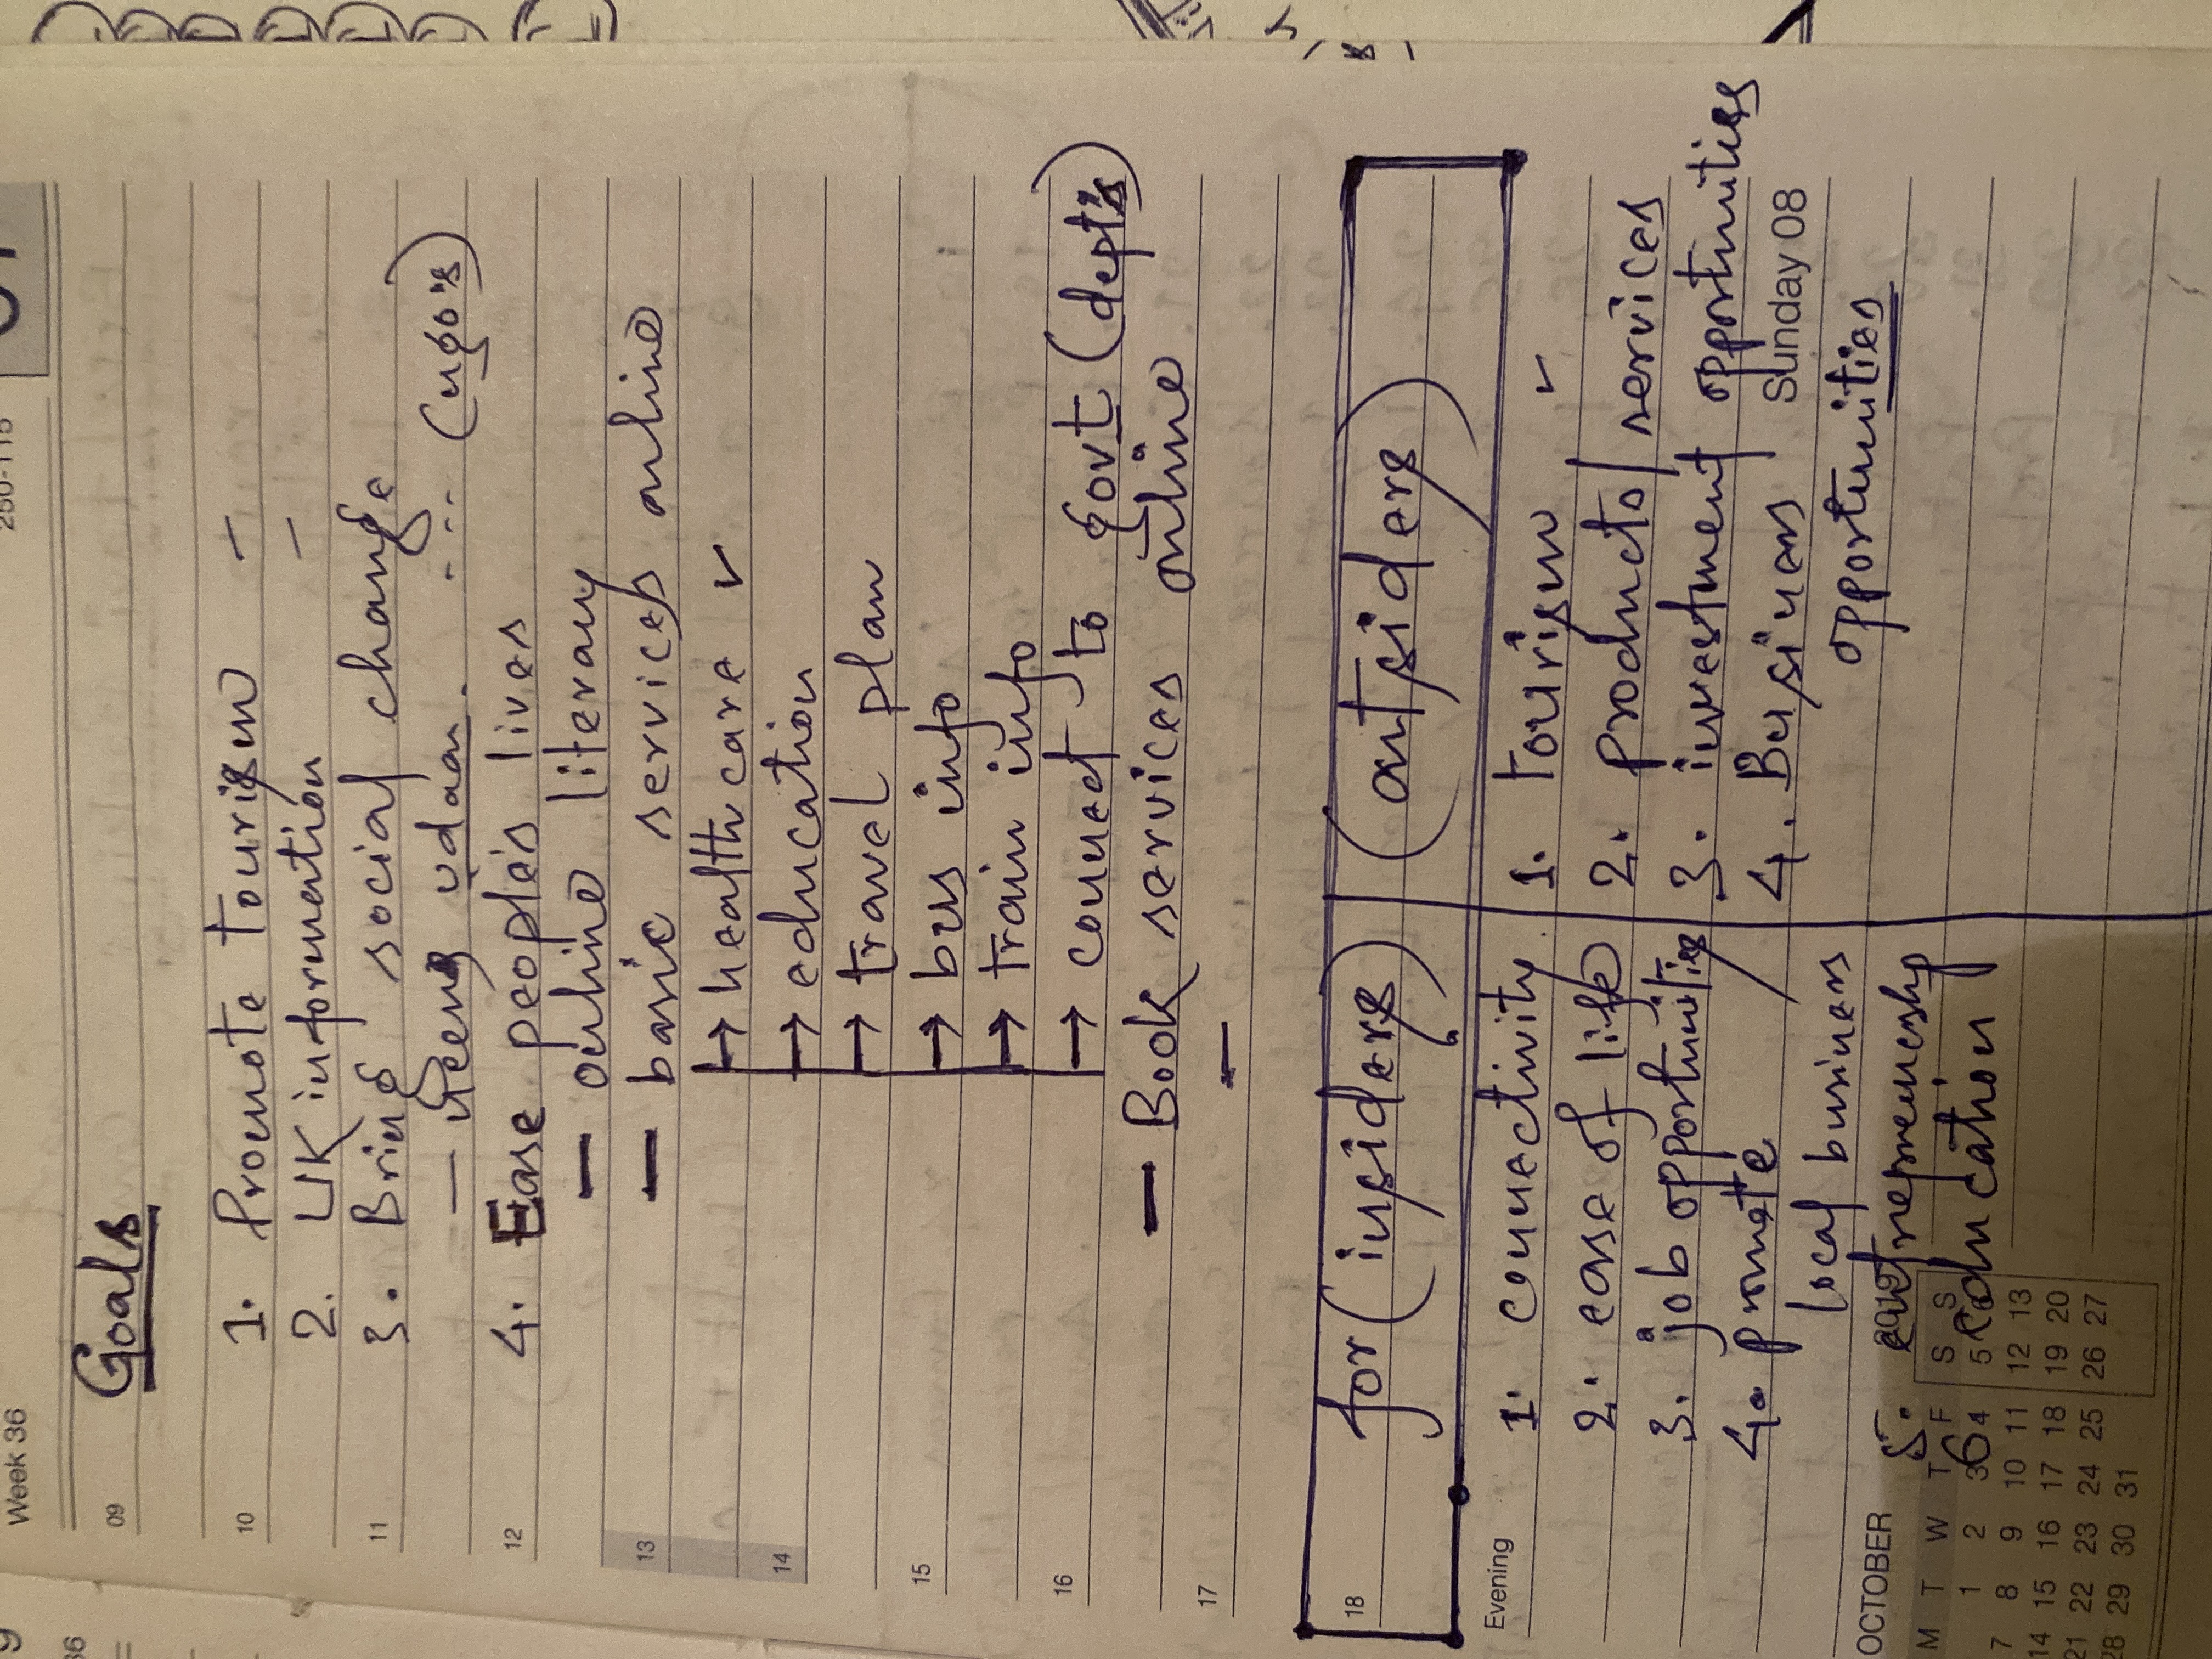 Week 36
250-115
09
Goals
10
1. Promote tourism -
2. UK information -
11
3. Bring social change
udaan. .... (ngo's)
12
4. Ease people's lives
- online literary
13
- basic services online
14
→ healthcare ✓
→ education
→ travel plan
15
→ bus info
→ train info
16
→ connect to govt (dept's)
- Book services online
17
-
18
for (insiders) (outsiders)
Evening
1. connectivity
2. ease of life
3. job opportunities
4. promote
local business
5. entrepreneurship
6 education
1. tourism ✓
2. Products/services
3. investment opportunities
4. Business
Sunday 08
opportunities
OCTOBER
M T W T F S S
1 2 3 4 5
7 8 9 10 11 12 13
14 15 16 17 18 19 20
21 22 23 24 25 26 27
28 29 30 31